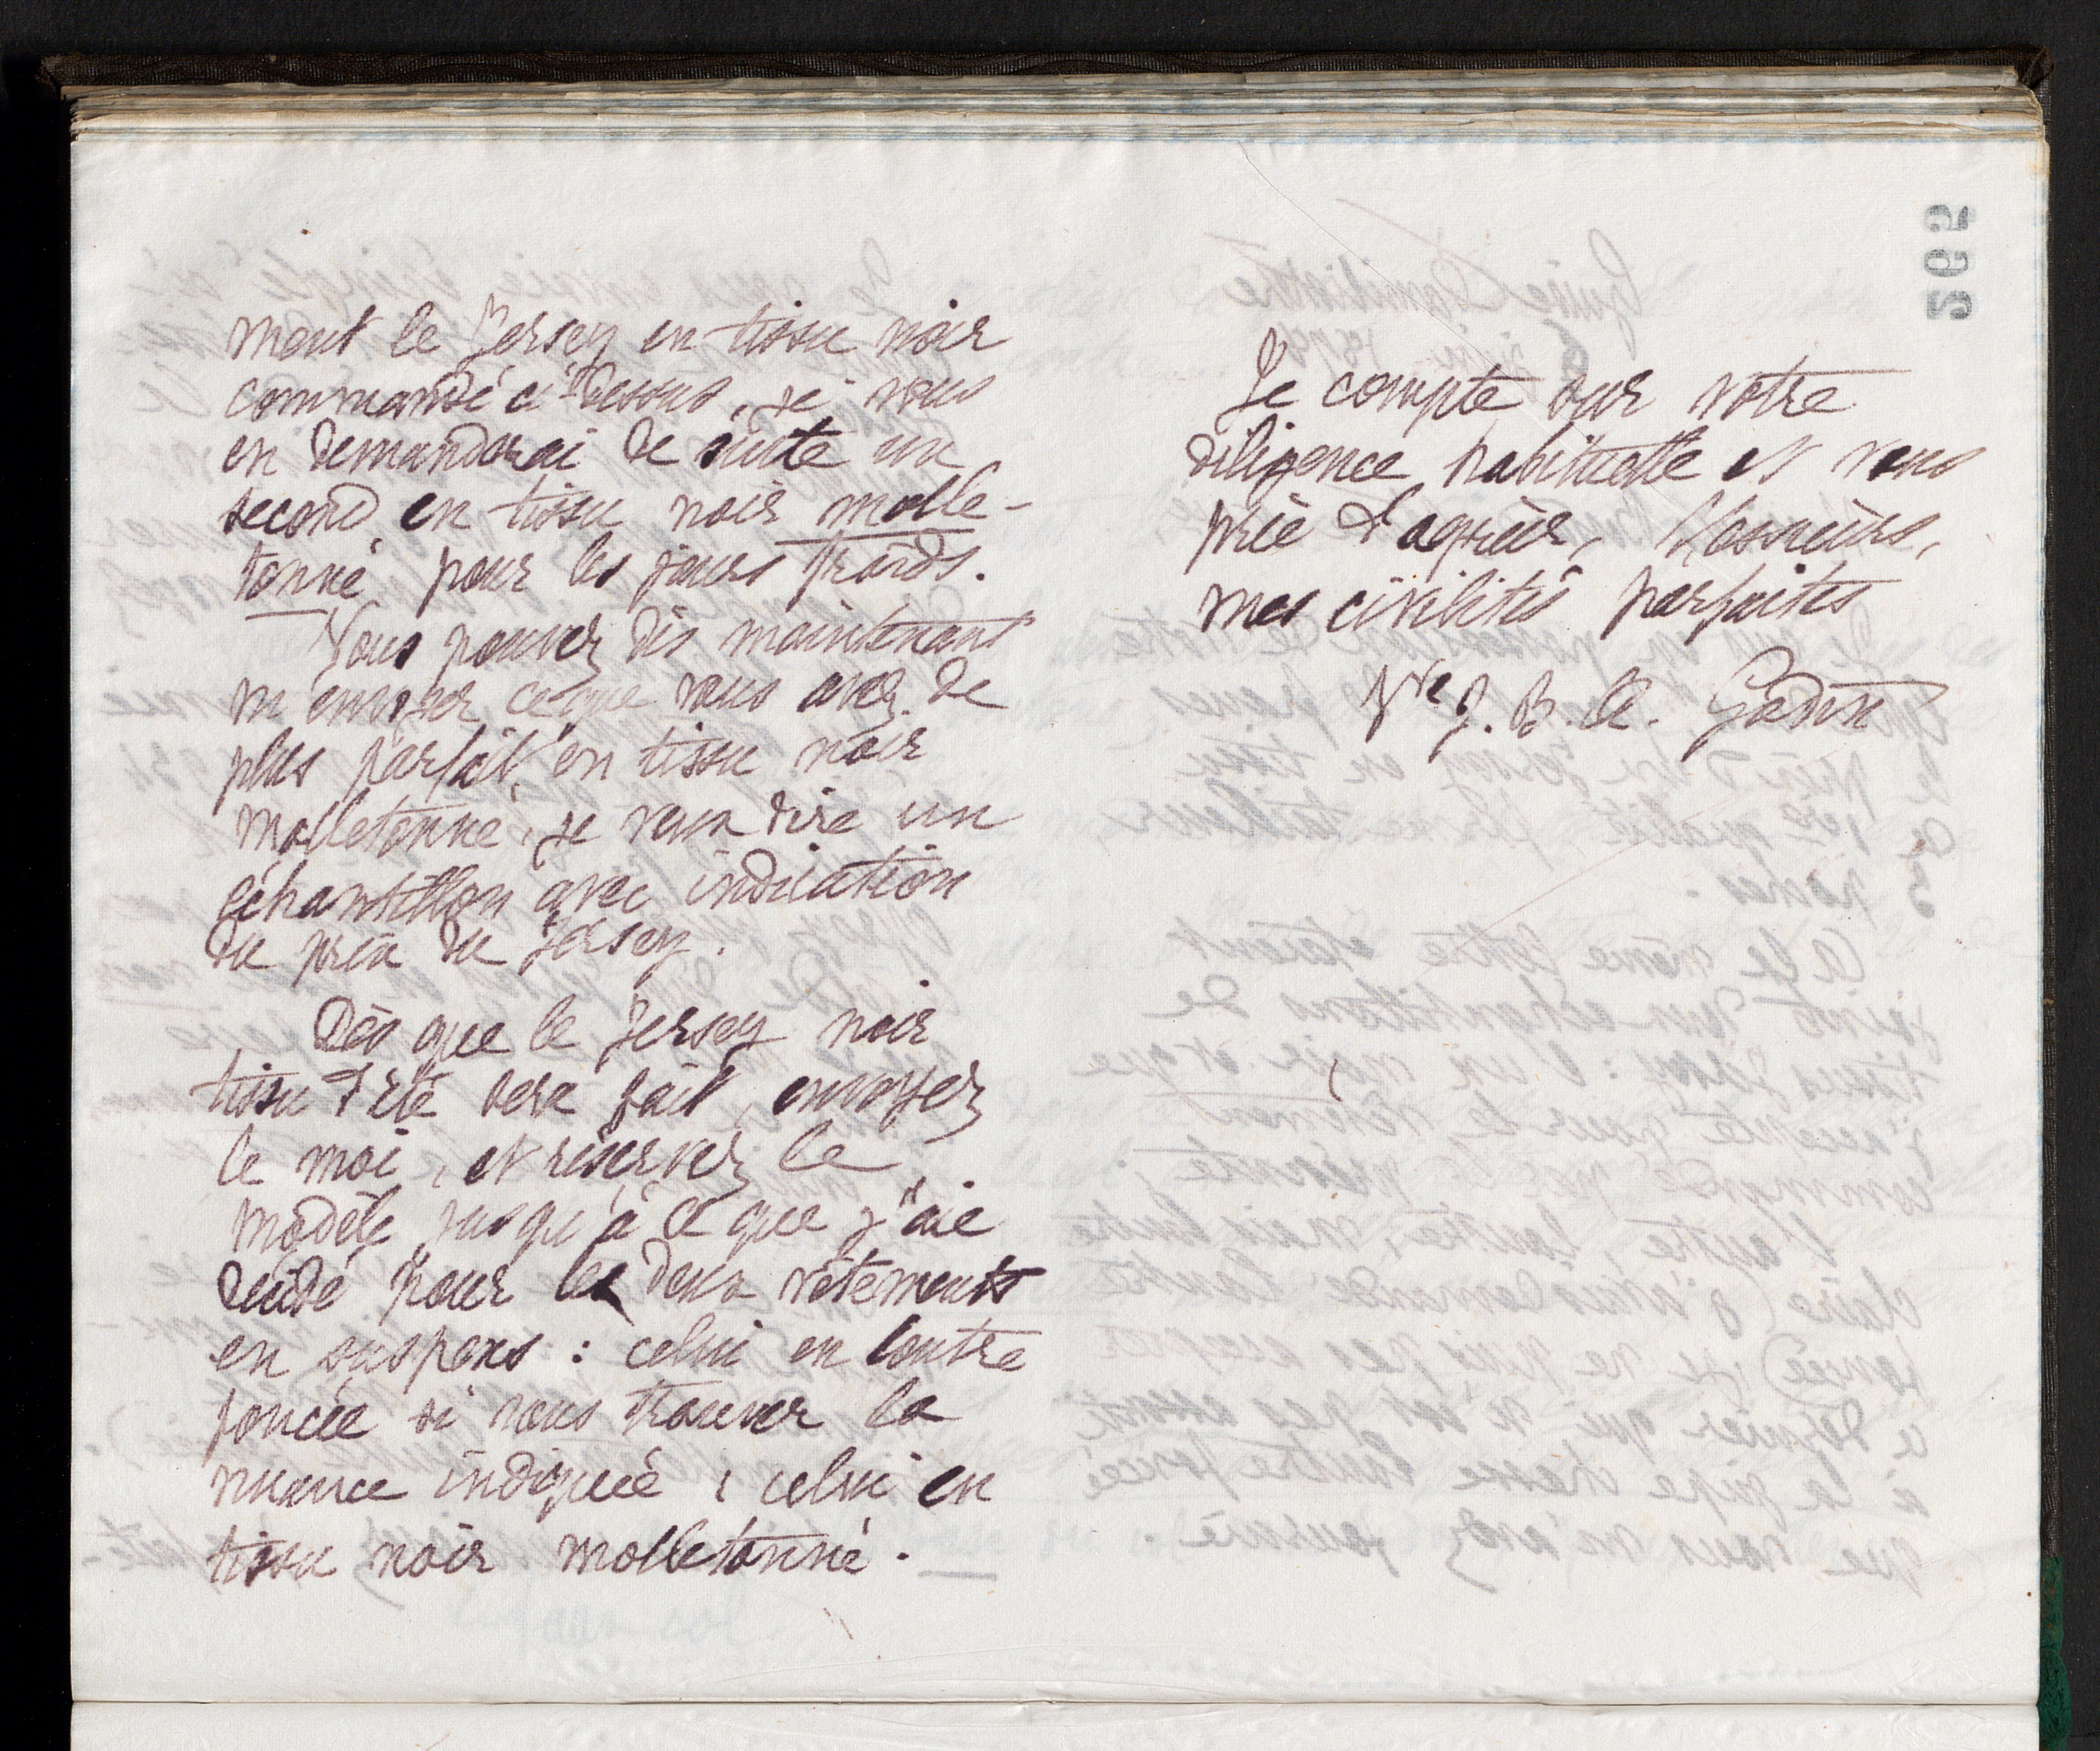 ment le jersey en tissu noir
commandé ci-dessus, je vous
en demanderai de suite un
second en tissu noir molle-
tonné pour les jours froids.
Vous pouvez dès maintenant
m'envoyer ce que vous avez de
plus parfait en tissu noir
molletonné, je veux dire un
échantillon avec indication
du prix du jersey.
Dès que le jersey noir
tissu d'été sera fait, envoyez
le moi, et réservez le
modèle jusqu'à ce que j'aie
décidé pour les deux vêtements
en suspens : celui en loutre
foncée si vous trouvez la
nuance indiquée ; celui en
tissu noir molletonné.
265
Je compte sur votre
diligence habituelle et vous
prie d'agréer, Messieurs,
mes civilités parfaites
Vve J. B. A. Godin